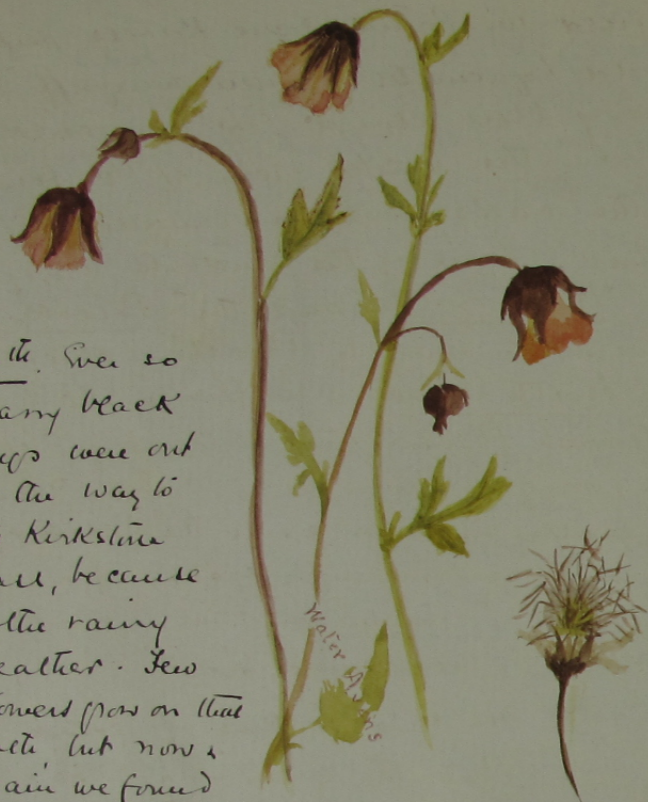 th. Ever so
any black
gs were out
the way to
Kirkstone
ass, because
the rainy
eather. Few
owers grow on that
, but now &
ain we found
Water Avens